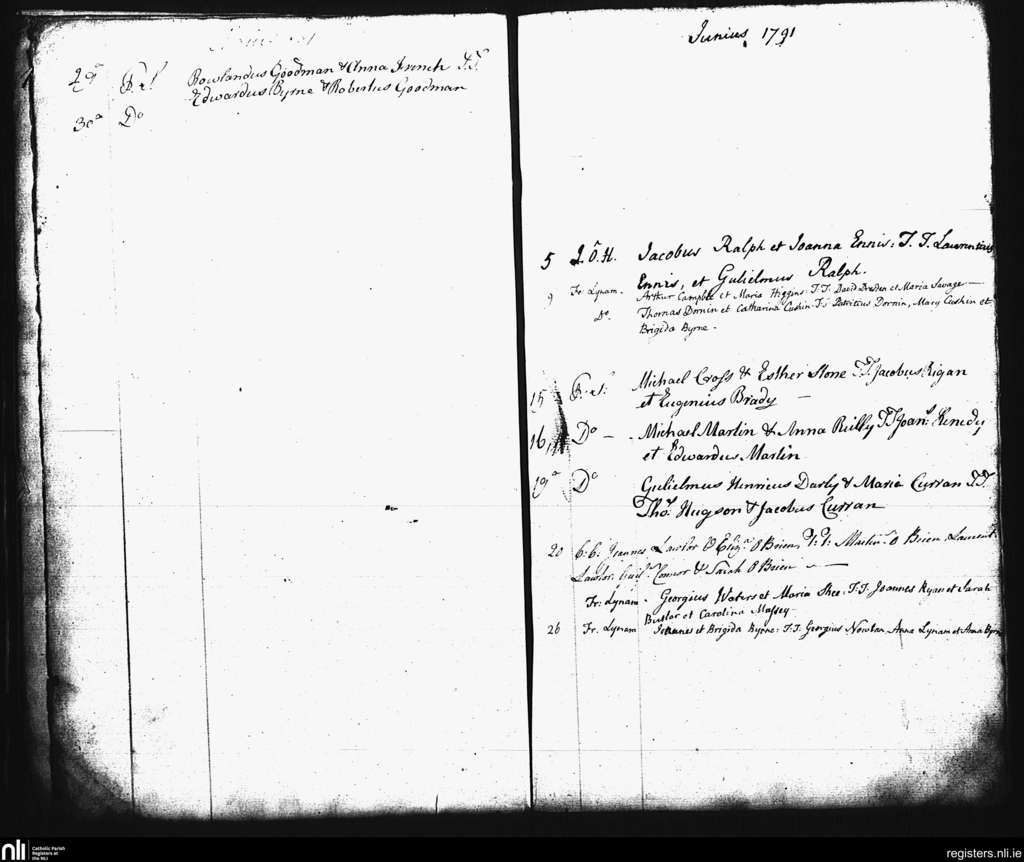 29ª Rowlandus Goodman & Anna French T.T.
Edwardus Byrne & Robertus Goodman
30ª Dº
Junius 1791
5 J. O. H. Jacobus Ralph et Joanna Ennis: T. T. Laurentius
Ennis, et Gulielmus Ralph.
9 Fr. Lynam. Arthur Campble et Maria Higgins: T.T. David Dresden et Maria Savage
Do. Thomas Dornin et Catharina Cushin Ts Patritius Dornin, Mary Cushin et
Brigida Byrne.
15 Michael Cross & Esther Stone TT Jacobus Rigan
et Eugenius Brady
16 Dº Michael Martin & Anna Reilly TT Joans Kenedy
et Edwardus Martin
19ª Dº Gulielmus Henricus Darly & Maria Curran TT.
Thos Hugson & Jacobus Curran
20 C. C. Joannes Lawlor & Elizª O Brien, T: T: Martin O Brien, Laurent
Lawlor, Guil. Connor & Sarah O Brien
Fr: Lynam. Georgius Waters et Maria Shee: T:T. Joannes Ryan et Sarah
Butlar et Carolina Massey
26 Fr. Lynam Joannes et Brigida Byrne: T.T. Georgius Nowlan, Anna Lynam et Anna Byrn
nli Catholic Parish
Registers at
the NLI
registers.nli.ie